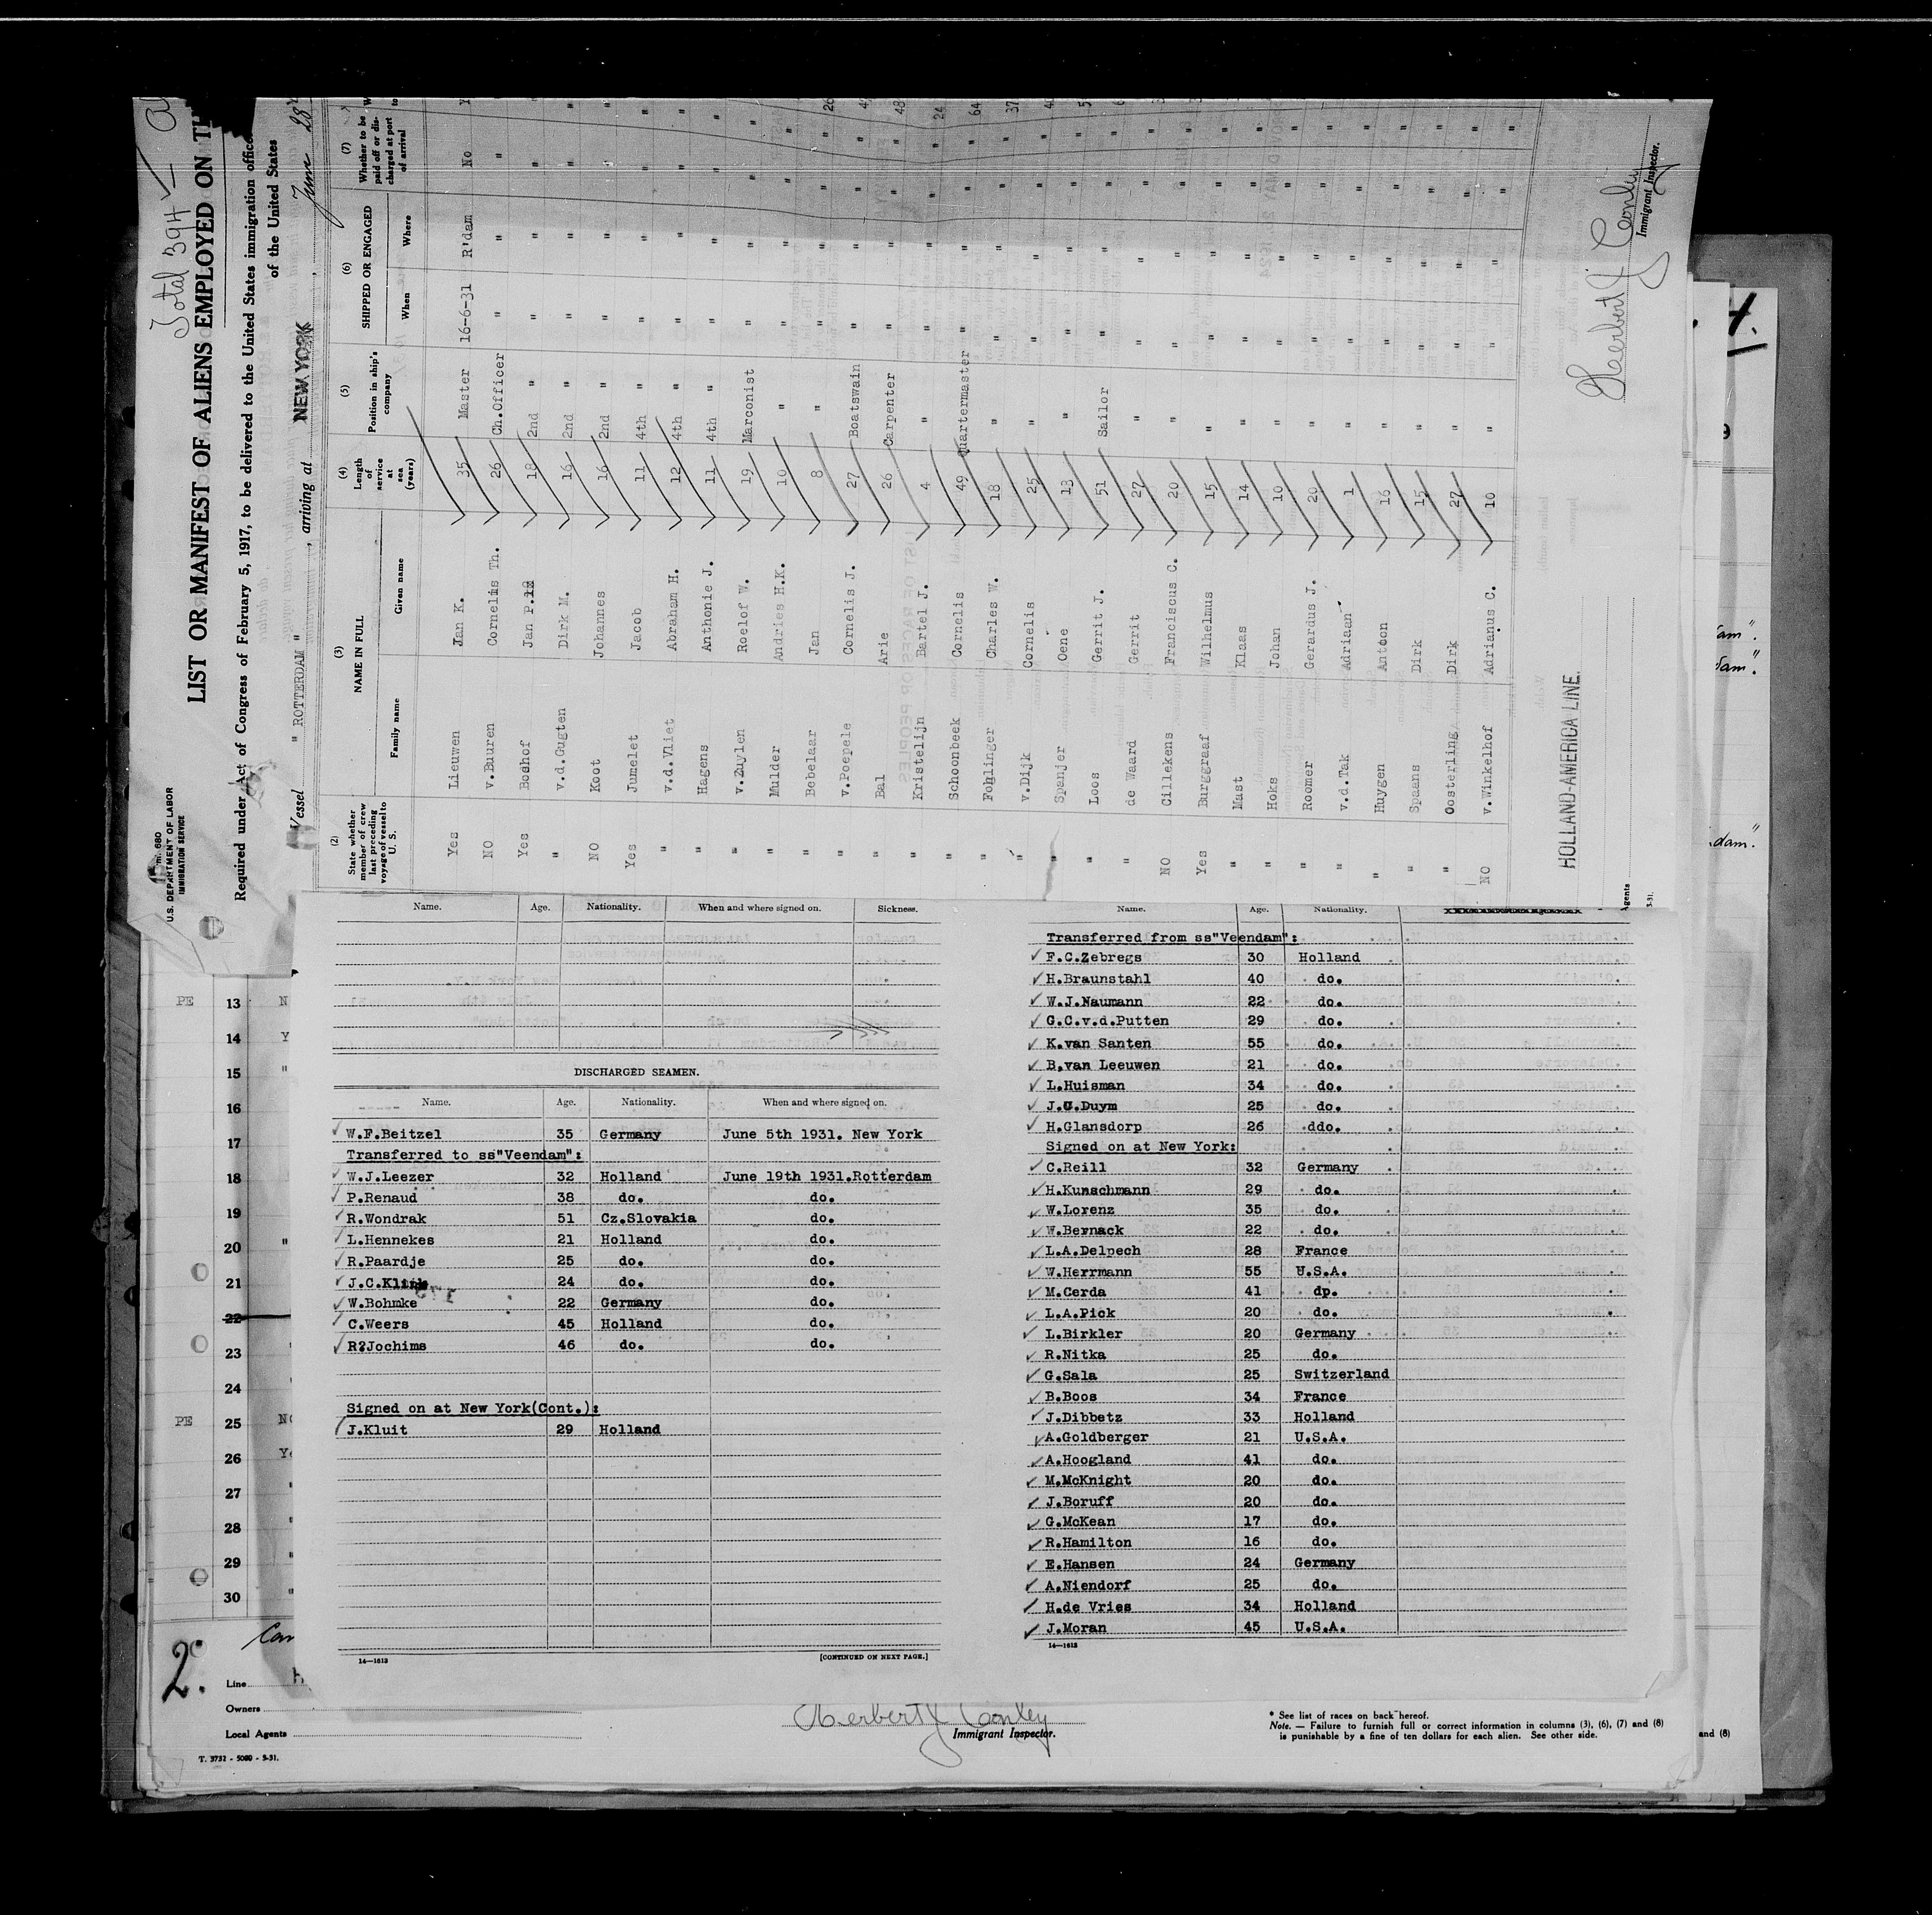 Total 394
Form 680
U.S. DEPARTMENT OF LABOR
IMMIGRATION SERVICE
LIST OR MANIFEST OF ALIENS EMPLOYED ON
Required under Act of Congress of February 5, 1917, to be delivered to the United States immigration
of the United States
Vessel " ROTTERDAM " , arriving at NEW YORK , June 28
(2) (3) (4) (5) (6) (7)
State whether member of crew last preceding voyage of vessel to U. S. NAME IN FULL Length of service at sea (years) Position in ship's company SHIPPED OR ENGAGED Whether to be paid off or discharged at port of arrival
Family name Given name When Where
Yes Lieuwen Jan K. 35 Master 16-6-31 R'dam No
NO v.Buuren Cornelis Th. 26 Ch.Officer " " "
Yes Boshof Jan P. 18 2nd " " " "
" v.d.Gugten Dirk M. 16 2nd " " " "
NO Koot Johannes 16 2nd " " " "
Yes Jumelet Jacob 11 4th " " " "
" v.d.Vliet Abraham H. 12 4th " " " "
" Hagens Anthonie J. 11 4th " " " "
" v.Zuylen Roelof W. 19 Marconist " " "
" Mulder Andries H.K. 10 " " " "
" Bebelaar Jan 8 " " " "
" v.Poepele Cornelis J. 27 Boatswain " " "
" Bal Arie 26 Carpenter " " "
" Kristelijn Bartel J. 4 " " " "
" Schoonbeek Cornelis 49 Quartermaster " " "
" Fohlinger Charles W. 18 " " " "
" v.Dijk Cornelis 25 " " " "
" Spanjer Oene 13 " " " "
" Loos Gerrit J. 51 Sailor " " "
" de Waard Gerrit 27 " " " "
NO Cillekens Franciscus C. 20 " " " "
Yes Burggraaf Wilhelmus 15 " " " "
" Mast Klaas 14 " " " "
" Hoks Johan 10 " " " "
" Roomer Gerardus J. 20 " " " "
" v.d.Tak Adriaan 1 " " " "
" Huygen Anton 16 " " " "
" Spaans Dirk 15 " " " "
" Oosterling Dirk 27 " " " "
NO v.Winkelhof Adrianus C. 10 " " " "
HOLLAND-AMERICA LINE.
Agents
Herbert J Conley
Immigrant Inspector.
Name. Age. Nationality. When and where signed on. Sickness.
DISCHARGED SEAMEN.
Name. Age. Nationality. When and where signed on.
W.F.Beitzel 35 Germany June 5th 1931. New York
Transferred to ss"Veendam":
W.J.Leezer 32 Holland June 19th 1931.Rotterdam
P.Renaud 38 do. do.
R.Wondrak 51 Cz.Slovakia do.
L.Hennekes 21 Holland do.
R.Paardje 25 do. do.
J.C.Klink 24 do. do.
W.Bohmke 22 Germany do.
C.Weers 45 Holland do.
R?Jochims 46 do. do.
Signed on at New York(Cont.):
J.Kluit 29 Holland
14—1613
[CONTINUED ON NEXT PAGE.]
Name. Age. Nationality.
Transferred from ss"Veendam":
F.C.Zebregs 30 Holland
H.Braunstahl 40 do.
W.J.Naumann 22 do.
G.C.v.d.Putten 29 do.
K.van Santen 55 do.
B.van Leeuwen 21 do.
L.Huisman 34 do.
J.U.Duym 25 do.
H.Glansdorp 26 ddo.
Signed on at New York:
C.Reill 32 Germany
H.Kunschmann 29 do.
W.Lorenz 35 do.
W.Bernack 22 do.
L.A.Delpech 28 France
W.Herrmann 55 U.S.A.
M.Cerda 41 dp.
L.A.Pick 20 do.
L.Birkler 20 Germany
R.Nitka 25 do.
G.Sala 25 Switzerland
B.Boos 34 France
J.Dibbetz 33 Holland
A.Goldberger 21 U.S.A.
A.Hoogland 41 do.
M.McKnight 20 do.
J.Boruff 20 do.
G.McKean 17 do.
R.Hamilton 16 do.
E.Hansen 24 Germany
A.Niendorf 25 do.
H.de Vries 34 Holland
J.Moran 45 U.S.A.
14—1613
PE 13 N
14 Y
15 "
16
17
18
19
20 "
21
22
23
24
PE 25 NO
26 Ye
27 "
28 "
29 "
30 "
2.
Line
Owners
Local Agents
T. 3732 - 5000 - 3-31.
Herbert J Conley
Immigrant Inspector.
* See list of races on back hereof.
Note. — Failure to furnish full or correct information in columns (3), (6), (7) and (8)
is punishable by a fine of ten dollars for each alien. See other side.
and (8)